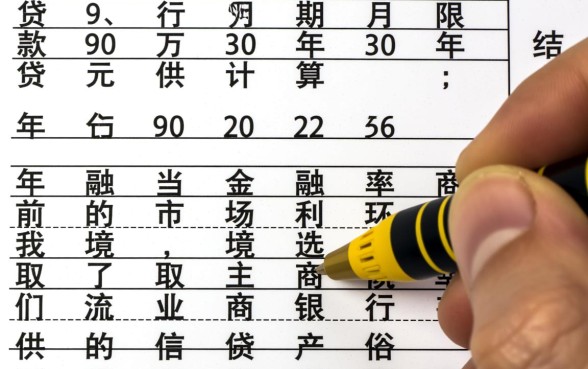 贷 9、 行 期 月 限
款 90 万 30 年 30 年
贷 元 供 计 算 ;
结
年 90 20 22 36
年 融 当 金 融 率 商
前 的 市 场 利 环
我 境 , 境 选
取 了 取 主 商
们 流 业 商 银 行
供 的 信 贷 产 俗